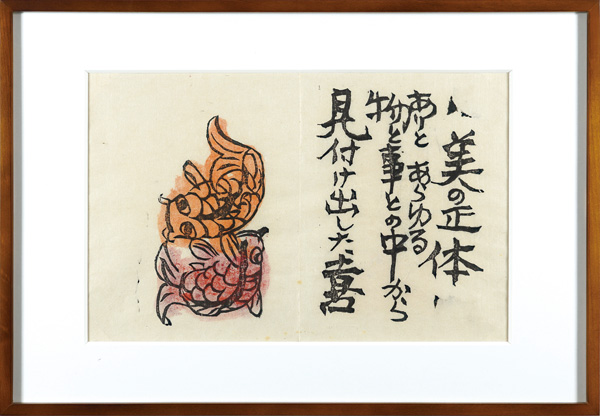 美の正体
ありと あらゆる
物と事との中から
見付け出した喜